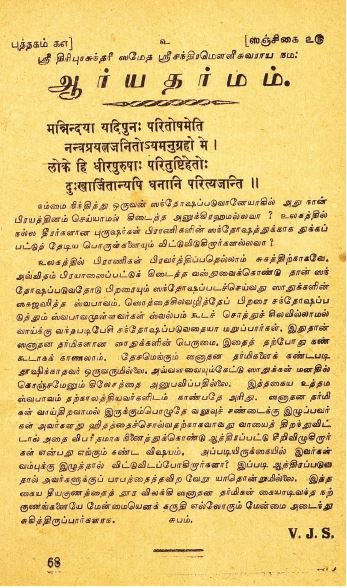 புத்தகம் கஎ] உ [ஸஞ்சிகை உரு
ஸ்ரீ திரிபுரசுந்தரீ ஸமேத ஸ்ரீசந்திரமௌளீசுவராய நம:
ஆர்யதர்மம்.
मन्निन्दया यदिपुनः परितोषमेति
नन्वप्रयत्नजनितोऽयमनुग्रहो मे ।
लोके हि धीरपुरुषाः परितुष्टिहेतोः
दुःखार्जितान्यपि धनानि परित्यजन्ति ॥
நம்மை நிந்தித்து ஒருவன் ஸந்தோஷப்படுவானேயாகில் அது நான்
பிரயத்தினம் செய்யாமல் கிடைத்த அனுக்கிரஹமல்லவா ? உலகத்தில்
நல்ல தீரர்களான புருஷர்கள் பிராணிகளின் ஸந்தோஷத்துக்காக துக்கப்
பட்டுத் தேடிய பொருள்களையும் விட்டுவிடுகிறார்களல்லவா ?
உலகத்தில் பிராணிகள் பிரவர்த்திப்பதெல்லாம் சுகத்திற்காகவே.
அவ்விதம் பிரயாஸைப்பட்டுக் கிடைத்த வஸ்துவைக்கொண்டு தான் ஸந்
தோஷப்படுவதோடு பிறரையும் ஸந்தோஷப்படச்செய்வது ஸாதுக்களின்
ஸகஜமித்த ஸ்வபாவம். ஸொத்தைசிலவழித்தேப் பிறரை சந்தோஷப்ப
டுத்தும் ஸ்பாவமுள்ளவர்கள் ஸ்வல்பம் கூடச் சொத்துச் சிலவில்லாமல்
வாய்க்கு வந்தபடிபேசி சந்தோஷப்படுவதையா மறுப்பார்கள். இதுதான்
ஸனாதன தர்மிகளான ஸாதுக்களின் பெருமை. இதைத் தற்போது கண்
கூடாகக் காணலாம். தேசமெங்கும் ஸனாதன தர்மிகளைக் கண்டபடி
தூஷிக்காதவர் ஒருவருமில்லை. அவ்வளவையும்கேட்டு ஸாதுக்கள் மனதில்
கொஞ்சமேனும் கிலேசத்தை அனுபவிப்பதில்லை. இத்தகைய உத்தம
ஸ்வபாவம் தற்காலத்தியவர்களிடம் காண்பதே அரிது. ஸனாதன தர்மி
கள் வாய்திறவாமல் இருக்கும்பொழுதே வலுவுச் சண்டைக்கு இழுப்பவர்
கள் அவர்களது ஹிதத்தைச்சொல்வதற்காகவாவது வாயைத் திறந்துவிட்
டால் அதை விபரீதமாக நினைத்துக்கொண்டு ஆத்திரப்பட்டு சீறிவிழுகிறார்
கள் என்பது எங்கும் கண்ட விஷயம். அப்படியிருக்கையில் இவர்கள்
வம்புக்கு இழுத்தால் விட்டுவிடப்போகிறார்களா? இப்படி ஆத்திரப்படுவ
தால் அவர்களுக்குப் பாபத்தைத்தவிற வேறு யாதொன்றுமில்லை. இத்த
கைய தீயகுணத்தைத் தூர விலக்கி ஸனாதன தர்மிகள் கையாடிவந்த நற்
குணங்களையே மேன்மையெனக் கருதி எல்லோரும் மேன்மை அடைந்து
சுகித்திருப்பார்களாக. சுபம்.
V. J. S.
68